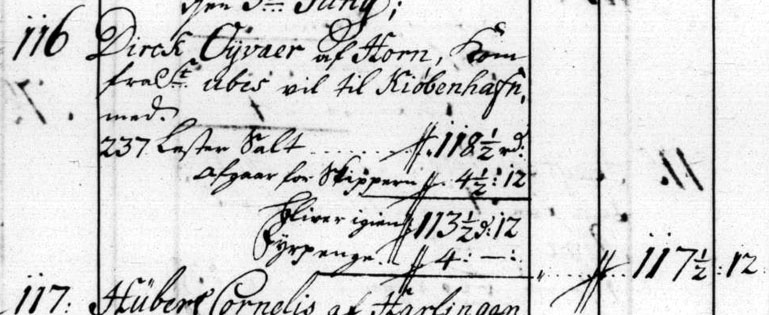 den 3tn Juny;
116 Dirck Oÿvaer af Horn, kom
fra St. ubes vil til Kiøbenhafn,
med.
237 Lester Salt ........ 118½ rd:
Afgaar for Skippern 4½: 12
bliver igien 113½ d: 12
Fÿrpenge .. 4: —: ........ 117½: 12.
117: Hübert Cornelis af Harlingen